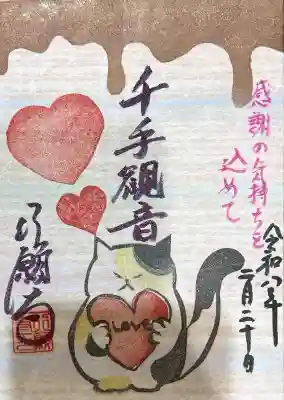 感謝の気持ちを
込めて
令和八年
二月二十日
千手観音
行願寺
LOVE